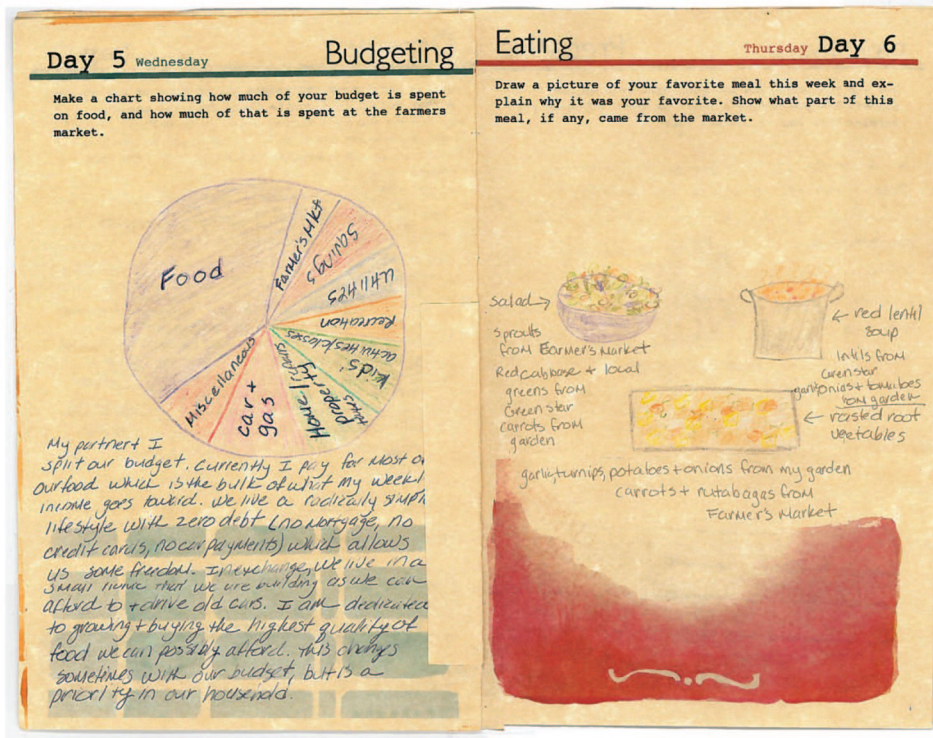 Day 5 Wednesday
Budgeting
Make a chart showing how much of your budget is spent
on food, and how much of that is spent at the farmers
market.
Food
Farmer's Mkt
Savings
Utilities
Recreation
Kid's
activities/closes
property
taxes
Home/repairs
car +
gas
Miscellaneous
My partner + I
split our budget. Currently I pay for most o
our food which is the bulk of what my weekl
income goes toward. We live a radically simpl
lifestyle with zero debt (no mortgage, no
credit cards, no car payments) which allows
us some freedom. In exchange, we live in a
small home that we are building as we can
afford to + drive old cars. I am dedicated
to growing + buying the highest quality of
food we can possibly afford. This changes
sometimes with our budget, but is a
priority in our household.
Eating
Thursday Day 6
Draw a picture of your favorite meal this week and ex-
plain why it was your favorite. Show what part of this
meal, if any, came from the market.
salad →
sprouts
from Farmer's Market
Red cabbage + local
greens from
Greenstar
carrots from
garden
← red lentil
soup
lentils from
Greenstar
garlic onions + tomatoes
from garden
← roasted root
vegetables
garlic, turnips, potatoes + onions from my garden
carrots + rutabagas from
Farmer's Market